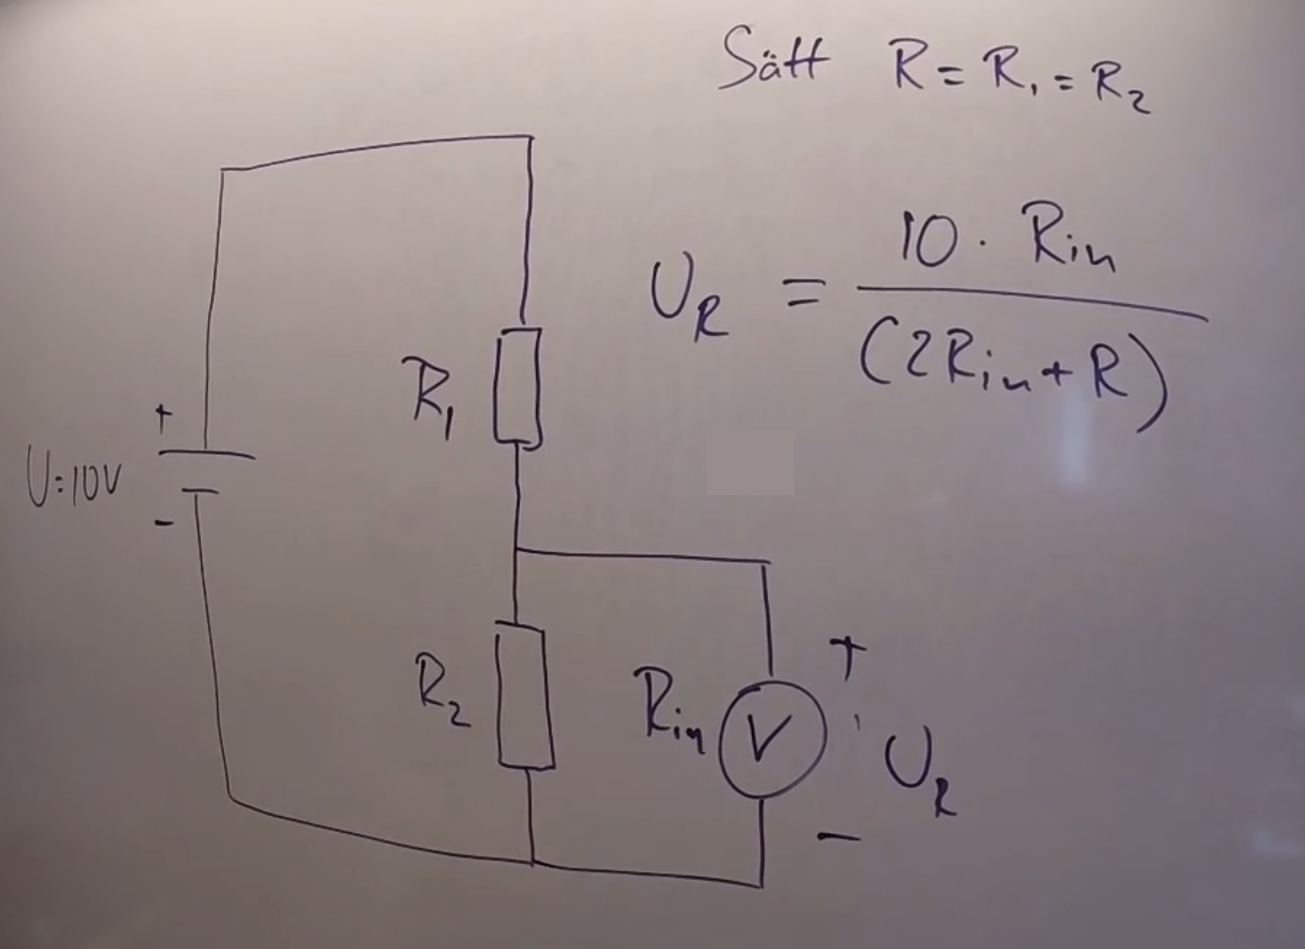 Sätt R = R₁ = R₂
U_R = 10 · Rin / (2Rin + R)
R₁
+
U=10V
-
+
R₂
Rin
V
U_R
-